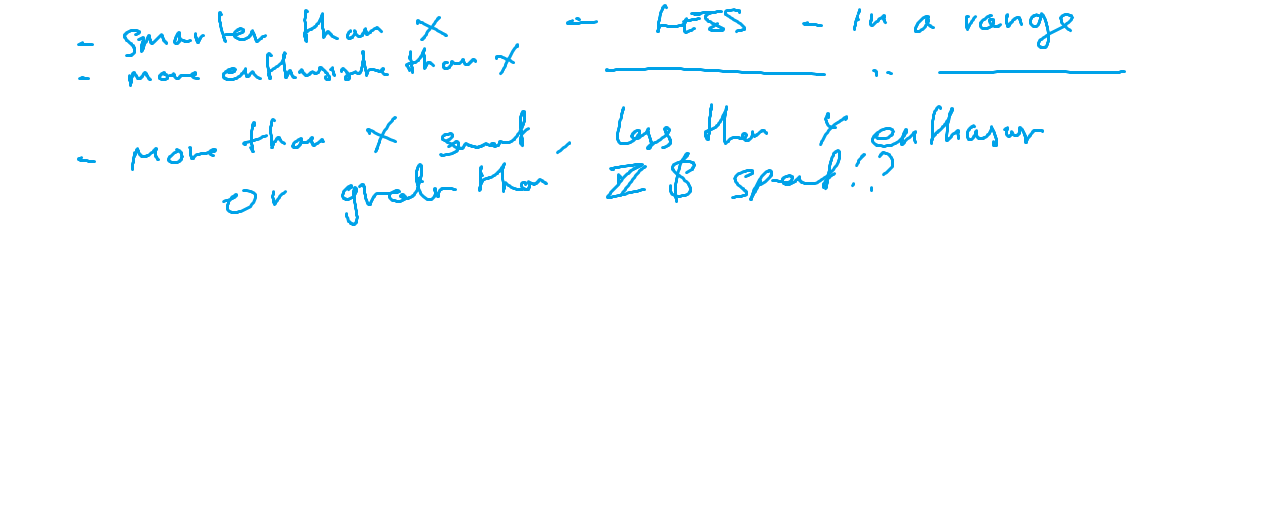 - smarter than X - LESS - in a range
- more enthusiastic than X ———— .. ————
- more than X smart, less than Y enthusiasm
or greater than Z $ spent!?